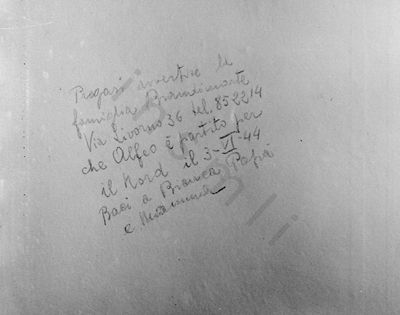 Pregasi avvertire la
famiglia Brandimarte
Via Livorno 36 tel. 852214
che Alfeo è partito per
il Nord il 3-VI-44
Baci a Bianca Papà
e Mamma